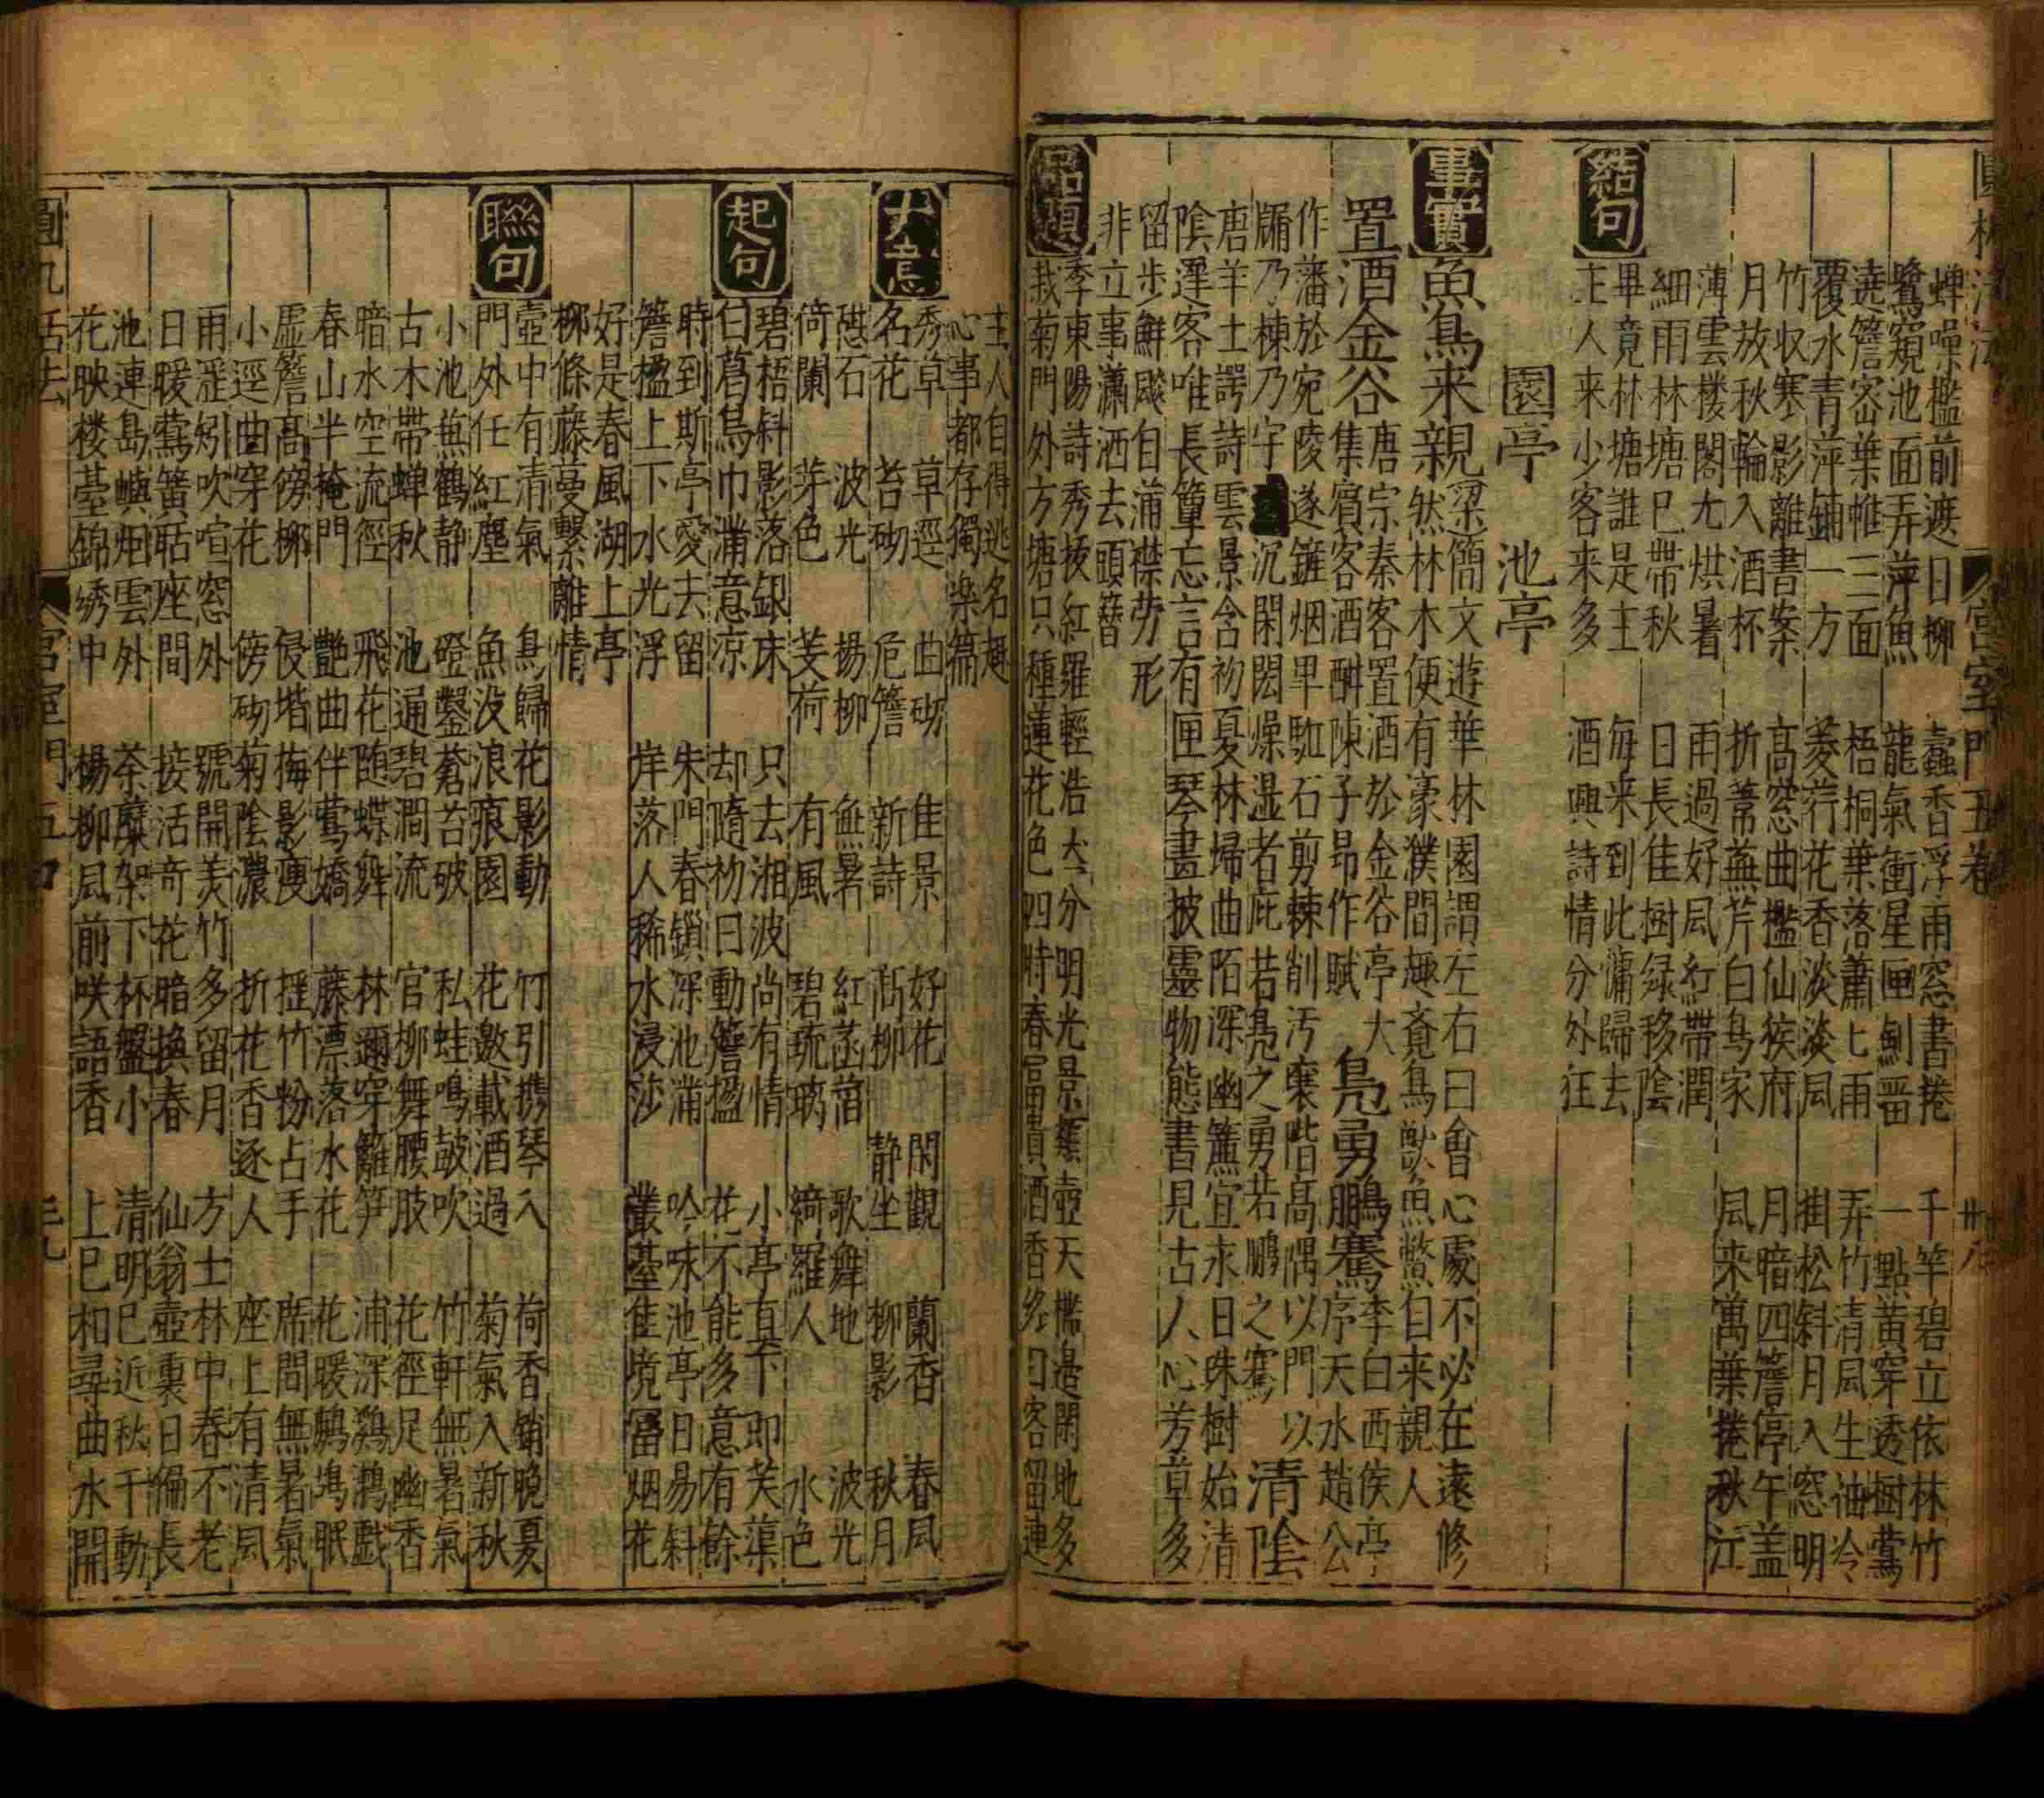 蟬噪檻前遮日柳　蠹香浮雨窓書捲　千竿碧立依林竹
鷺窺池面弄萍魚　龍氣衝星匣劍晋　一點黃穿透樹鶯
遶簷密葉帷三面　梧桐葉落蕭匕雨　弄竹清風生油冷
覆水青萍鋪一方　菱荇花香淡淡風　掛松斜月入窓明
竹收寒影離書案　高窓曲檻仙侯府　月暗四簷停午盖
月放秋輪入酒杯　折葦蕪芹白鳥家　風来萬葉捲秋江
薄雲楼閣尤烘暑　雨過好風紅帶潤
細雨林塘已帶秋　日長佳樹緑移陰
結句
畢竟林塘誰是主　每来到此慵歸去
主人来少客来多　酒興詩情分外狂
園亭　池亭
事實
魚鳥来親
梁簡文遊華林園謂左右曰會心處不必在遠修
然林木便有濠濮間趣覺鳥獸魚鱉自来親人
置酒金谷
唐宗秦客置酒於金谷亭大
集賓客酒酣陳子昂作賦
鳧勇鵬騫
李白西侯亭
序天水趙公
作藩於宛陵遂鏟烟畢駈石剪棘削汚壤階高隅以門以
牖乃棟乃宇沉閑閎燥湿者庇若鳧之勇若鵬之騫
清陰
唐羊士諤詩雲景含初夏林歸曲陌深幽簾宜永日珠樹始清
陰遅客唯長簟忘言有匣琴畫披靈物態書見古人心芳草多
留歩鮮飈自蒲襟劳形
非立事瀟洒去頭簪
品題
季東陽詩秀掖紅羅輕浩大三分明光景壺天檻邉閑地多
我菊門外方塘只種蓮花色四時春富貴酒香終日客留連
主人自得逃名趣
心事都存獨楽篇
大意
秀草　草逕　曲砌　佳景　好花　閑觀　蘭香　春風
名花　苔砌　危簷　新詩　髙柳　静坐　柳影　秋月
磋石　波光　楊柳　無暑　紅菡萏　歌舞地　波光
倚闌　芽色　芰荷　有風　碧琉璃　綺羅人　水色
起句
碧梧斜影落銀床　只去湘波尚有情　小亭直下即芙蕖
白葛烏巾滿意凉　却隨初日動簷楹　花不能多意有餘
時到斯亭愛去留　朱門春鎖深池滿　吟味池亭日易斜
簷楹上下水光浮　岸落人稀水浸莎　叢臺佳境冨烟花
好是春風湖上亭
柳條藤蔓繫離情
聯句
壺中有清氣　鳥歸花影動　竹引携琴入　荷香銷晚夏
門外任紅塵　魚没浪痕圓　花邀載酒過　菊氣入新秋
小池無鶴静　磴鑿蒼苔破　私蛙鳴鼓吹　竹軒無暑氣
古木帶蝉秋　池通碧澗流　官柳舞腰肢　花徑足幽香
暗水空流徑　飛花随蝶舞　林邇穿籬笋　浦深鷄鶒戲
春山半掩門　艷曲伴鶯嬌　藤漂落水花　花暖鷓鴣眠
虚簷髙傍柳　侵堦梅影痩　揺竹粉占手　席間無暑氣
小逕曲穿花　傍砌菊陰濃　折花香逐人　座上有清風
雨涯蚓吹喧窓外　號開羙竹多留月　方士林中春不老
日暖鶯簧聒座間　接活奇花暗換春　仙翁壺裏日偏長
池連島嶼烟雲外　荼蘼架下杯盤小　清明已近秋千動
花映楼䑓錦綉中　楊柳風前咲語香　上巳相尋曲水開